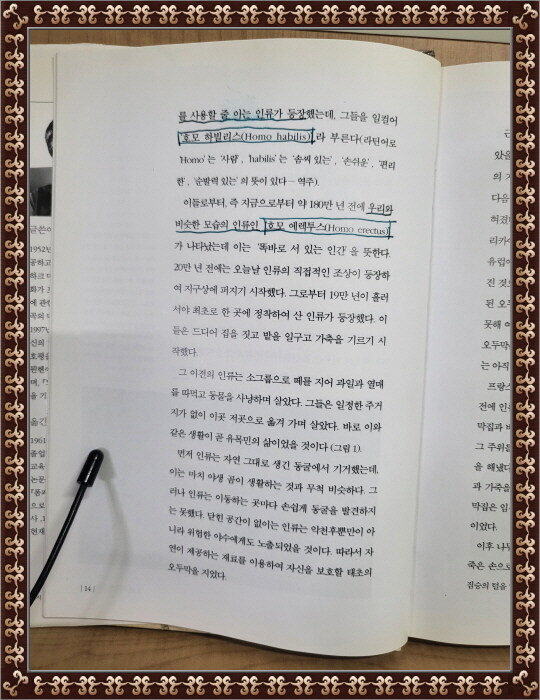 를 사용할 줄 아는 인류가 등장했는데, 그들을 일컬어
'호모 하빌리스(Homo habilis)'라 부른다(라틴어로
'Homo'는 '사람', 'habilis'는 '솜씨 있는', '손쉬운', '편리
한', '순발력 있는'의 뜻이 있다—역주).
이들로부터, 즉 지금으로부터 약 180만 년 전에 우리와
비슷한 모습의 인류인 '호모 에렉투스(Homo erectus)'
가 나타났는데 이는 '똑바로 서 있는 인간'을 뜻한다.
20만 년 전에는 오늘날 인류의 직접적인 조상이 등장하
여 지구상에 퍼지기 시작했다. 그로부터 19만 년이 흘러
서야 최초로 한 곳에 정착하여 산 인류가 등장했다. 이
들은 드디어 집을 짓고 밭을 일구고 가축을 기르기 시
작했다.
그 이전의 인류는 소그룹으로 떼를 지어 과일과 열매
를 따먹고 동물을 사냥하며 살았다. 그들은 일정한 주거
지가 없이 이곳 저곳으로 옮겨 가며 살았다. 바로 이와
같은 생활이 곧 유목민의 삶이었을 것이다 (그림 1).
먼저 인류는 자연 그대로 생긴 동굴에서 기거했는데,
이는 마치 야생 곰이 생활하는 것과 무척 비슷하다. 그
러나 인류는 이동하는 곳마다 손쉽게 동굴을 발견하지
는 못했다. 닫힌 공간이 없이는 인류는 악천후뿐만이 아
니라 위험한 야수에게도 노출되었을 것이다. 따라서 자
연이 제공하는 재료를 이용하여 자신을 보호할 태초의
오두막을 지었다.
| 14 |
글쓴이
1952년
1997년
옮긴
1961
졸업
교육
논문
으로
현재
의 지
다음
리카
유럽
진 것
된 오
못해 여
오두막
는 아직
프랑스
전에 인류
막집과 비
그 주위를
을 해냈다
과 가축을
막집은 임
이었다.
이후 나무
죽은 손으로
짐승의 털을